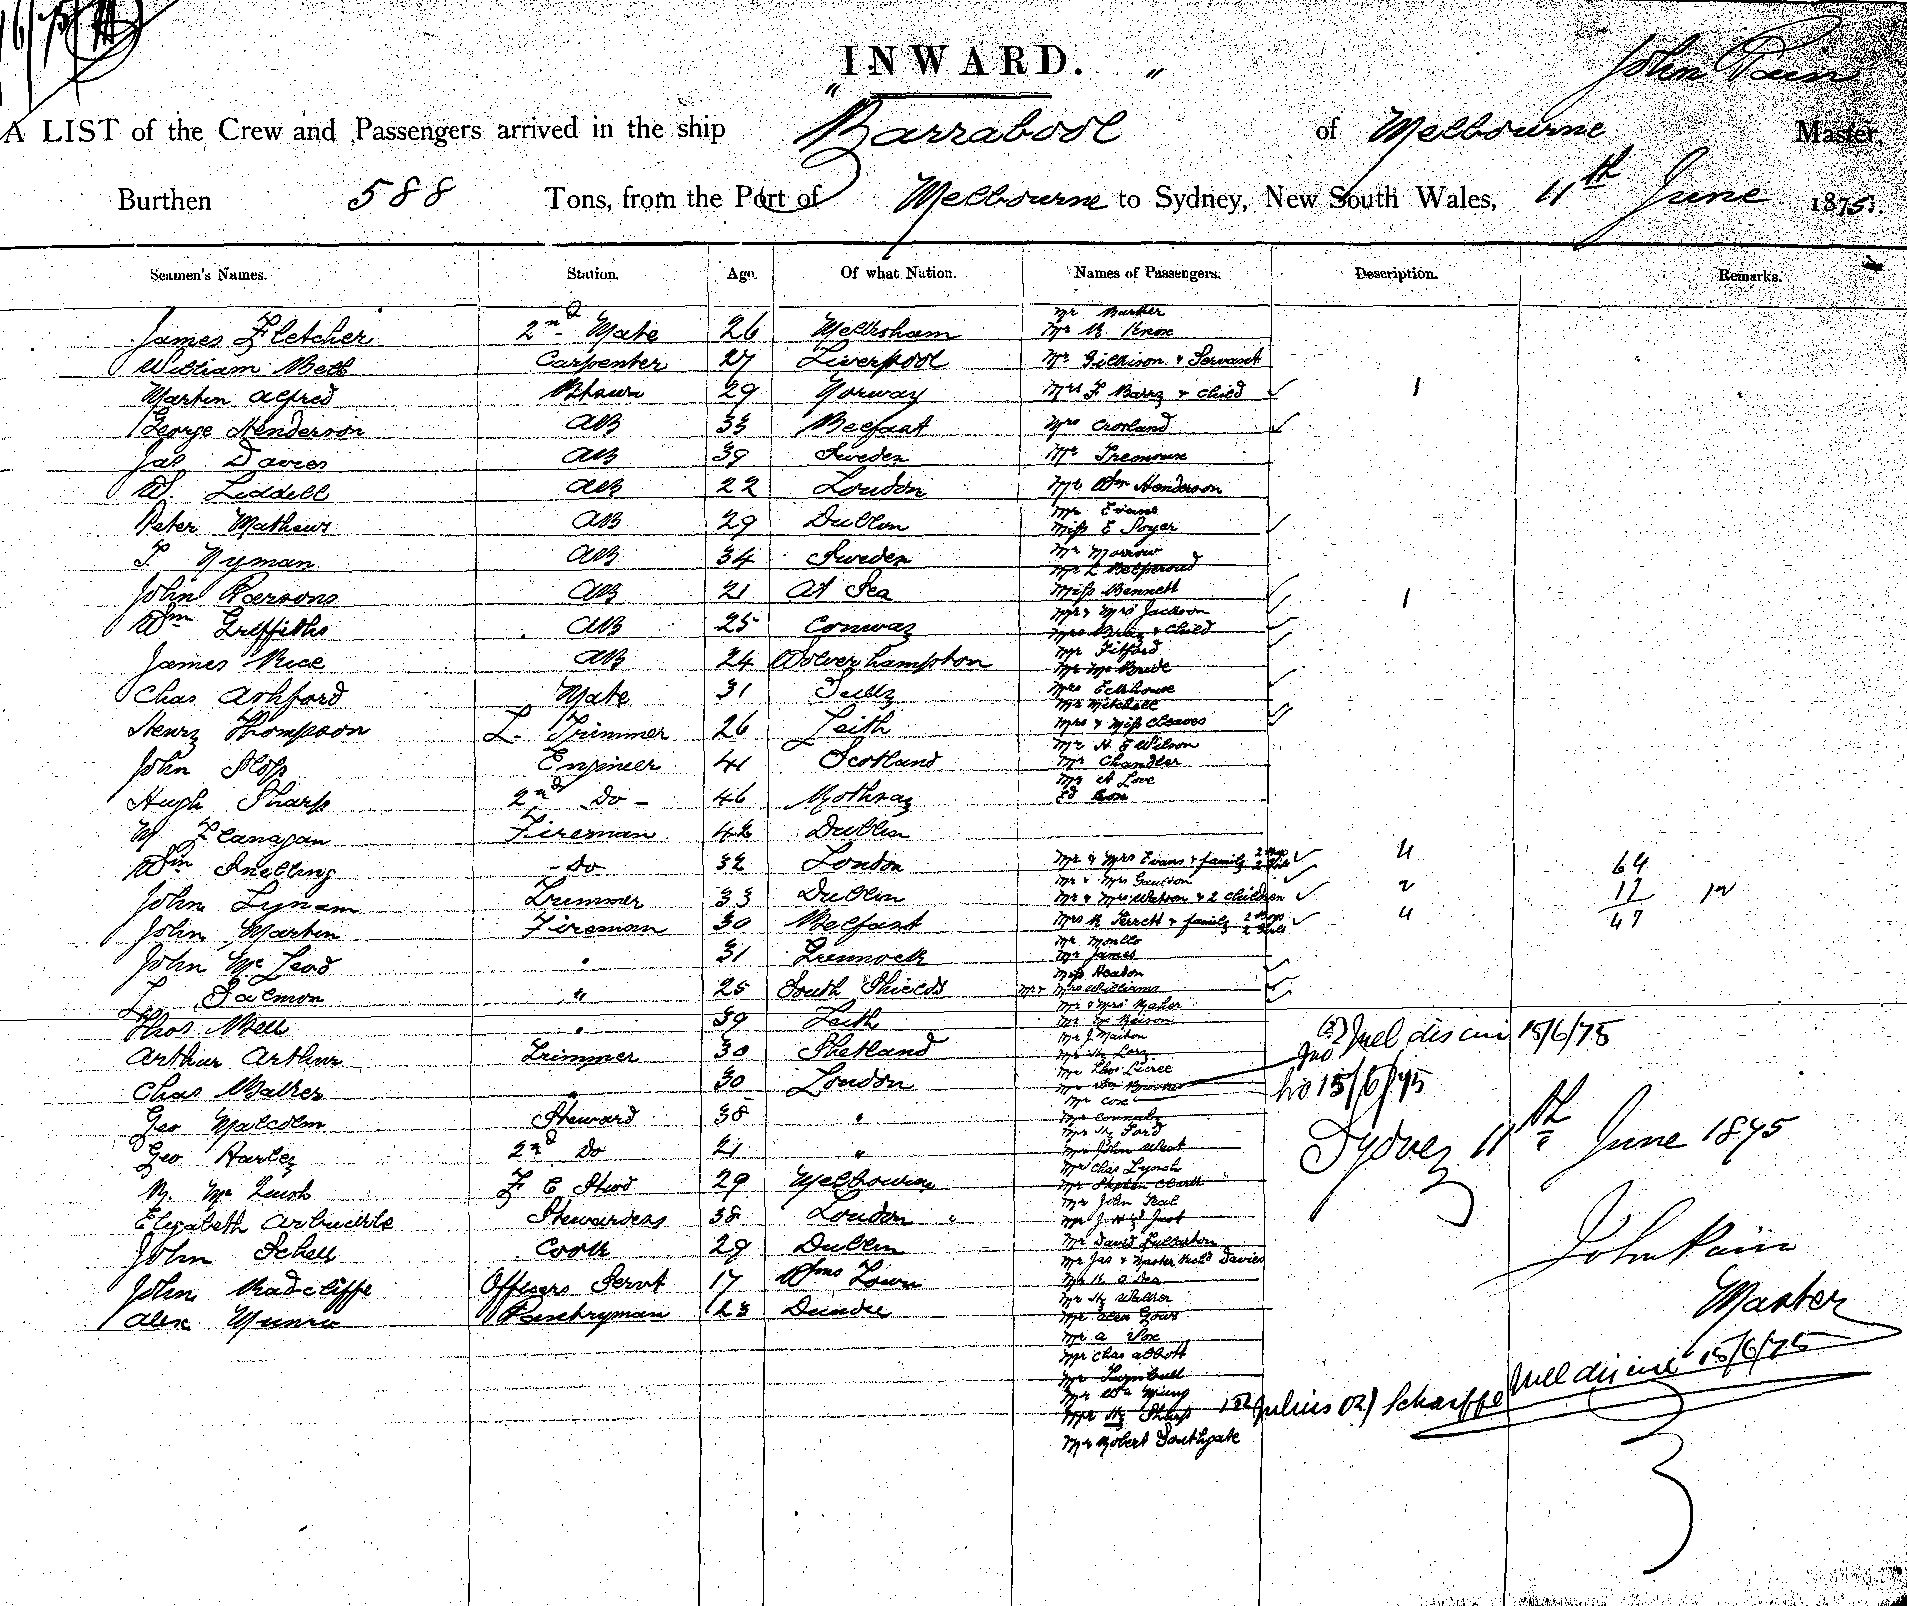 INWARD.
John Pain
A LIST of the Crew and Passengers arrived in the ship "Barrabool" of Melbourne Master,
Burthen 588 Tons, from the Port of Melbourne to Sydney, New South Wales, 11th June 1875.
Seamen's Names. Station. Age. Of what Nation. Names of Passengers. Description. Remarks.
Mr Barker
James Fletcher 2nd Mate 26 Melksham Mr R. Knox
William Bell Carpenter 27 Liverpool Mr Gilkison & Servant
Martin Alfred 29 Norway Mrs F Barry & child 1
George Henderson AB 33 Belfast Mrs Crosland
Jas Davies AB 39 Sweden Mr
W. Liddell AB 22 London Mr Wm Henderson
Mr Evans
Peter Mathews AB 29 Dublin Miss E Soyer
Mr Morrow
T Nyman AB 34 Sweden Mr L
John Parsons AB 21 At Sea Miss Bennett 1
Mr & Mrs Jackson
Wm Griffiths AB 25 Conway Mrs & child
Mr Titford
James Rice AB 24 Wolverhampton Mr McBride
Chas Ashford Mate 31 Mrs Eckhouse
Mr Mitchell
Henry Thompson L. Trimmer 26 Leith Mrs & Miss Cleaves
Mr H E Wilson
John Sloss Engineer 41 Scotland Mr Chandler
Mr A Love
Hugh Sharp 2nd Do - 46 Rothsay
M Flanagan Fireman 42 Dublin
Wm Snelling - Do 32 London Mr & Mrs Evans & family 4 64
Mr & Mrs Gaulton
John Lynam Trimmer 33 Dublin Mr & Mrs Watson & 2 children 2 17
John Martin Fireman 30 Belfast Mrs R Perrett & family 4 47
Mr
John McLeod " 31 Greenock Mr James
Miss Heaton
Salmon " 25 South Shields Mr & Mrs Williams
Mr & Mrs Baker
Thos Bell " 39 Leith Mr
Mr J
Arthur Arthur Trimmer 30 Shetland Mr
Mr Thos
Chas Walker " 30 London Mr
Mr Cox
Geo Malcolm Steward 38 " Mr Connolly
Mr Hy Ford
Geo Harley 2nd Do 21 " Mr John West
Mr Chas Lynch
R. F C Stwd 29 Melbourne Mr Stephen Clark
Mr John Neal
Elizabeth Arbuckle Stewardess 38 London Mr
John Schell Cook 29 Dublin Mr David
Mr Jas & Master Davies
John Radcliffe Officers Servt 17 Wms Town Mr
Mr Hy Walker
Alex Munro Pantryman 23 Dundee Mr Alex Gows
Mr A
Mr Chas Abbott
Mr Turnbull
Mr Wm
Mr Hy Sharp
Mr Robert Southgate
15/6/75
15/6/75
Sydney 11th June 1875
John Pain
Master
Julius Scharffe 15/6/75